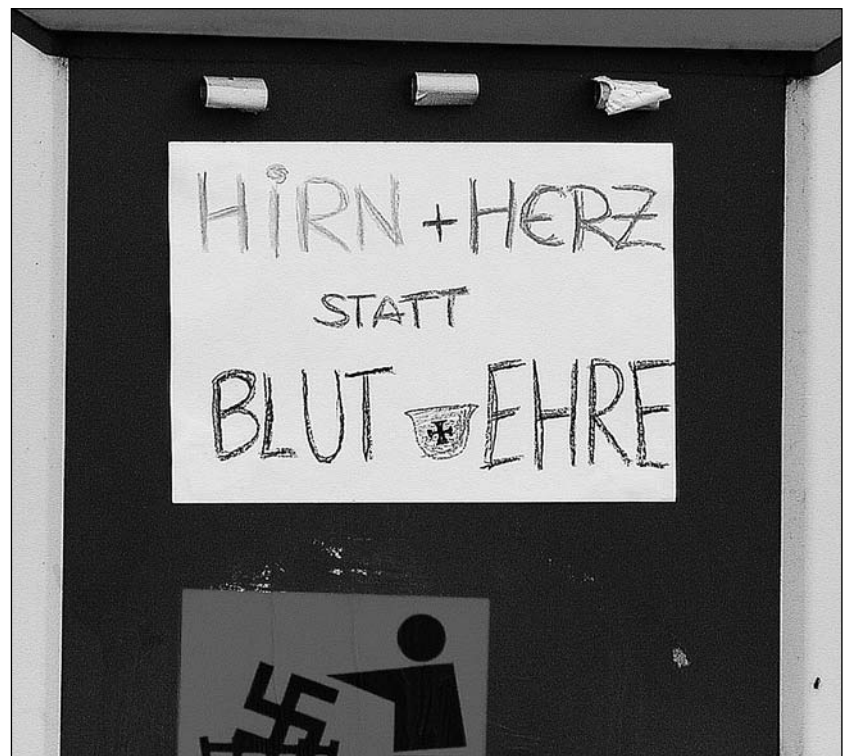 HiRN + HERZ
STATT
BLUT EHRE